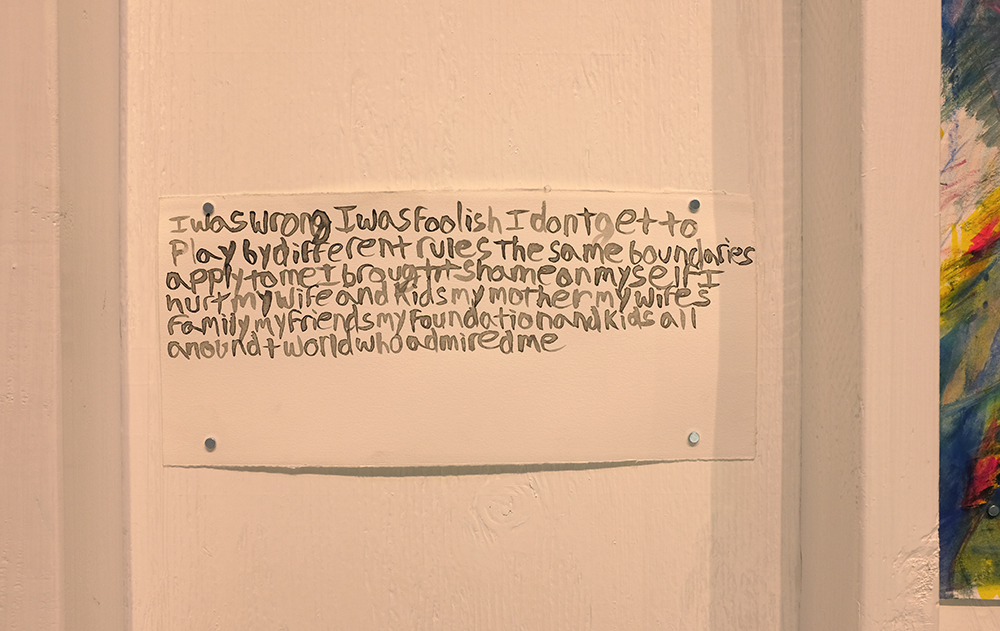 I was wrong I was foolish I dont get to
Play by different rules The same boundaries
apply to me I brought shame on myself I
hurt my wife and kids my mother my wifes
family my friends my foundation and kids all
around t world who admired me